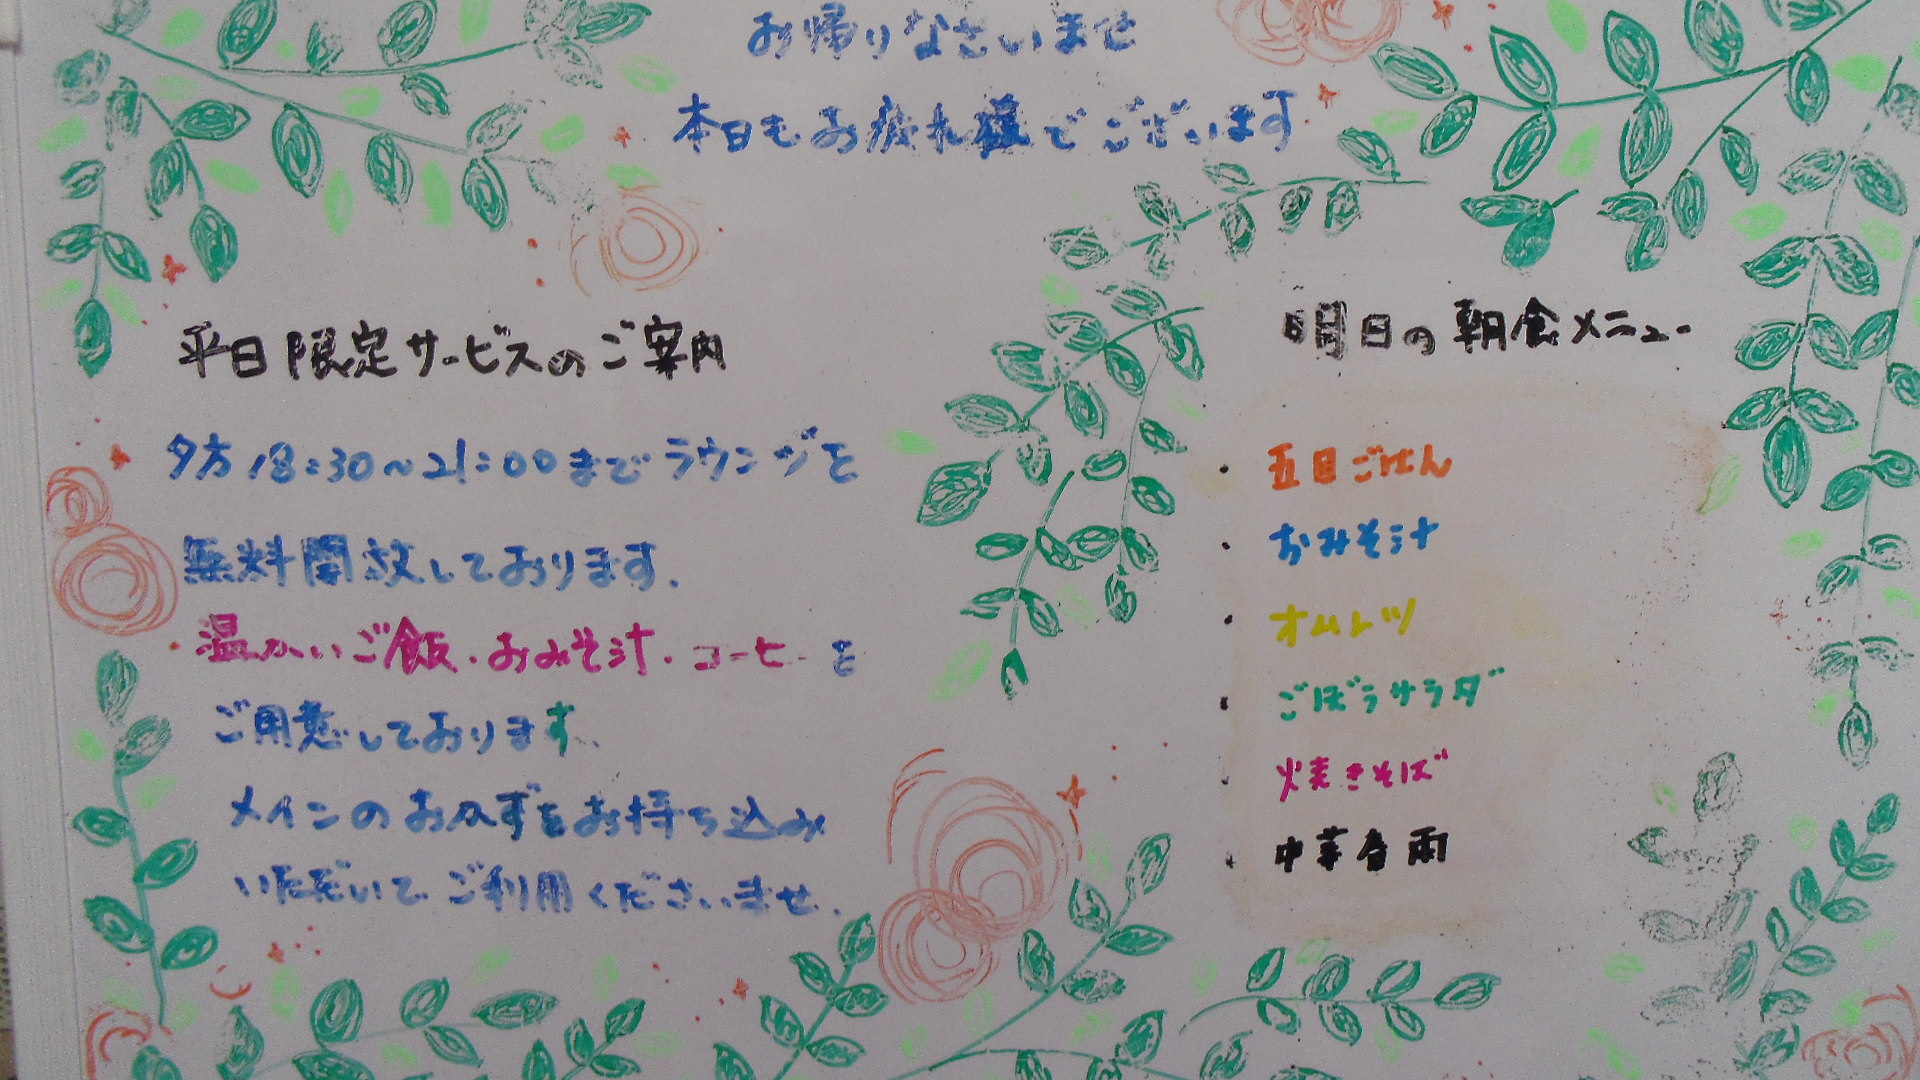 お帰りなさいませ
本日もお疲れ様でございます
平日限定サービスのご案内
夕方18:30～21:00までラウンジを
無料開放しております.
温かいご飯.おみそ汁.コーヒーを
ご用意しております.
メインのおかずをお持ち込み
いただいてご利用くださいませ.
明日の朝食メニュー
・五目ごはん
・おみそ汁
・オムレツ
・ごぼうサラダ
・焼きそば
・中華春雨